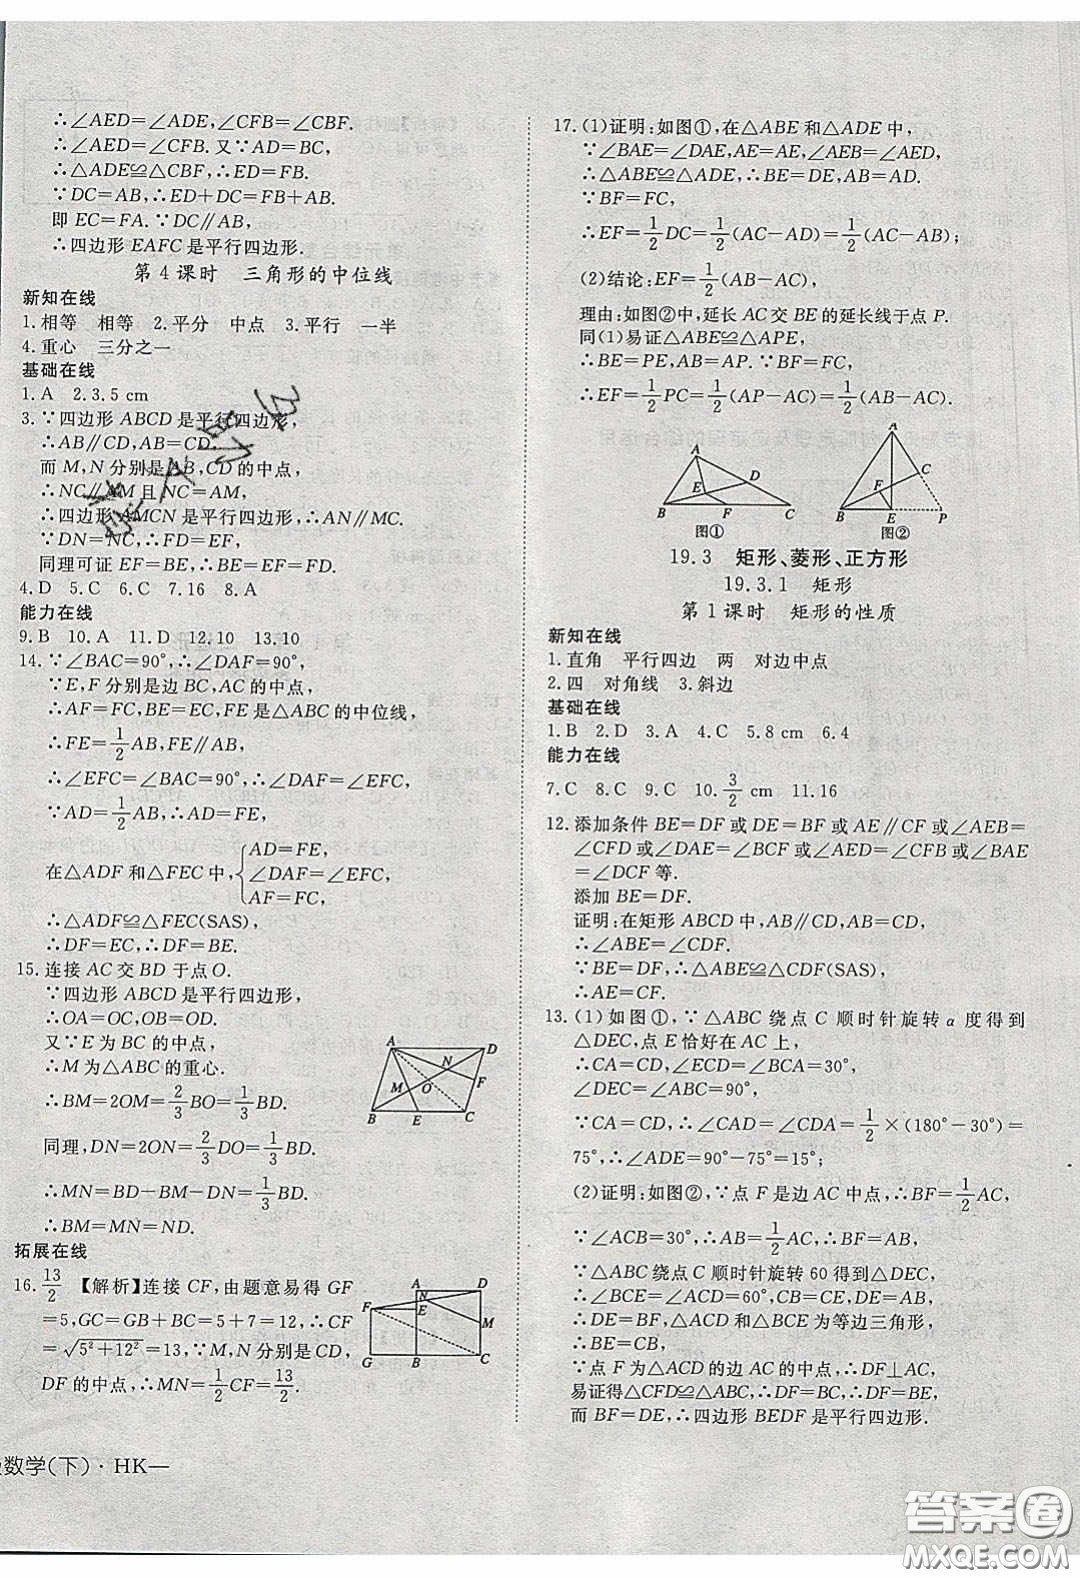 ∴∠AED=∠ADE,∠CFB=∠CBF.
∴∠AED=∠CFB. 又∵AD=BC,
∴△ADE≌△CBF,∴ED=FB.
∵DC=AB,∴ED+DC=FB+AB.
即 EC=FA. ∵DC∥AB,
∴四边形 EAFC 是平行四边形.
第 4 课时　三角形的中位线
新知在线
1. 相等　相等　2. 平分　中点　3. 平行　一半
4. 重心　三分之一
基础在线
1. A　2. 3.5 cm
3. ∵四边形 ABCD 是平行四边形,
∴AB∥CD,AB=CD.
而 M,N 分别是 AB,CD 的中点,
∴NC∥AM 且 NC=AM,
∴四边形 AMCN 是平行四边形,∴AN∥MC.
∵DN=NC,∴DF=EF.
同理可证 EF=BE,∴BE=EF=FD.
4. D　5. C　6. C　7. 16　8. A
能力在线
9. B　10. A　11. D　12. 10　13. 10
14. ∵∠BAC=90°,∴∠DAF=90°,
∵E,F 分别是边 BC,AC 的中点,
∴AF=FC,BE=EC,FE 是△ABC 的中位线,
∴FE=1/2AB,FE∥AB,
∴∠EFC=∠BAC=90°,∴∠DAF=∠EFC
∵AD=1/2AB,∴AD=FE,
在△ADF 和△FEC 中,{AD=FE,
∠DAF=∠EFC,
AF=FC,
∴△ADF≌△FEC(SAS)
∴DF=EC,∴DF=BE.
15. 连接 AC 交 BD 于点 O.
∵四边形 ABCD 是平行四边形,
∴OA=OC,OB=OD.
又∵E 为 BC 的中点,
∴M 为△ABC 的重心.
∴BM=2OM=2/3BO=1/3BD.
同理,DN=2ON=2/3DO=1/3BD.
∴MN=BD−BM−DN=1/3BD.
∴BM=MN=ND.
A D N F M O B E C
拓展在线
16. 13/2　【解析】连接 CF,由题意易得 GF
=5,GC=GB+BC=5+7=12,∴CF
=√(5²+12²)=13,∵M,N 分别是 CD,
DF 的中点,∴MN=1/2CF=13/2.
A D N F E M G B C
级数学(下)·HK—
17. (1)证明:如图①,在△ABE 和△ADE 中,
∵∠BAE=∠DAE,AE=AE,∠AEB=∠AED,
∴△ABE≌△ADE,∴BE=DE,AB=AD.
∵BF=FC,
∴EF=1/2DC=1/2(AC−AD)=1/2(AC−AB).
(2)结论:EF=1/2(AB−AC),
理由:如图②中,延长 AC 交 BE 的延长线于点 P.
同(1)易证△ABE≌△APE,
∴BE=PE,AB=AP. ∵BF=FC,
∴EF=1/2PC=1/2(AP−AC)=1/2(AB−AC).
A D E B F C
图①
A C F B E P
图②
19.3　矩形、菱形、正方形
19.3.1　矩形
第 1 课时　矩形的性质
新知在线
1. 直角　平行四边　两　对边中点
2. 四　对角线　3. 斜边
基础在线
1. B　2. D　3. A　4. C　5. 8 cm　6. 4
能力在线
7. C　8. C　9. C　10. 3/2 cm　11. 16
12. 添加条件 BE=DF 或 DE=BF 或 AE∥CF 或∠AEB=
∠CFD 或∠DAE=∠BCF 或∠AED=∠CFB 或∠BAE
=∠DCF 等.
添加 BE=DF.
证明:在矩形 ABCD 中,AB∥CD,AB=CD,
∴∠ABE=∠CDF.
∵BE=DF,∴△ABE≌△CDF(SAS),
∴AE=CF.
13. (1)如图①,∵△ABC 绕点 C 顺时针旋转 α 度得到
△DEC,点 E 恰好在 AC 上,
∴CA=CD,∠ECD=∠BCA=30°,
∠DEC=∠ABC=90°,
∵CA=CD,∴∠CAD=∠CDA=1/2×(180°−30°)=
75°,∴∠ADE=90°−75°=15°;
(2)证明:如图②,∵点 F 是边 AC 中点,∴BF=1/2AC,
∵∠ACB=30°,∴AB=1/2AC,∴BF=AB.
∵△ABC 绕点 C 顺时针旋转 60 得到△DEC,
∴∠BCE=∠ACD=60°,CB=CE,DE=AB,
∴DE=BF,△ACD 和△BCE 为等边三角形,
∴BE=CB,
∵点 F 为△ACD 的边 AC 的中点,∴DF⊥AC,
易证得△CFD≌△ABC,∴DF=BC,∴DF=BE,
而 BF=DE,∴四边形 BEDF 是平行四边形.
答案圈
MXQE.COM